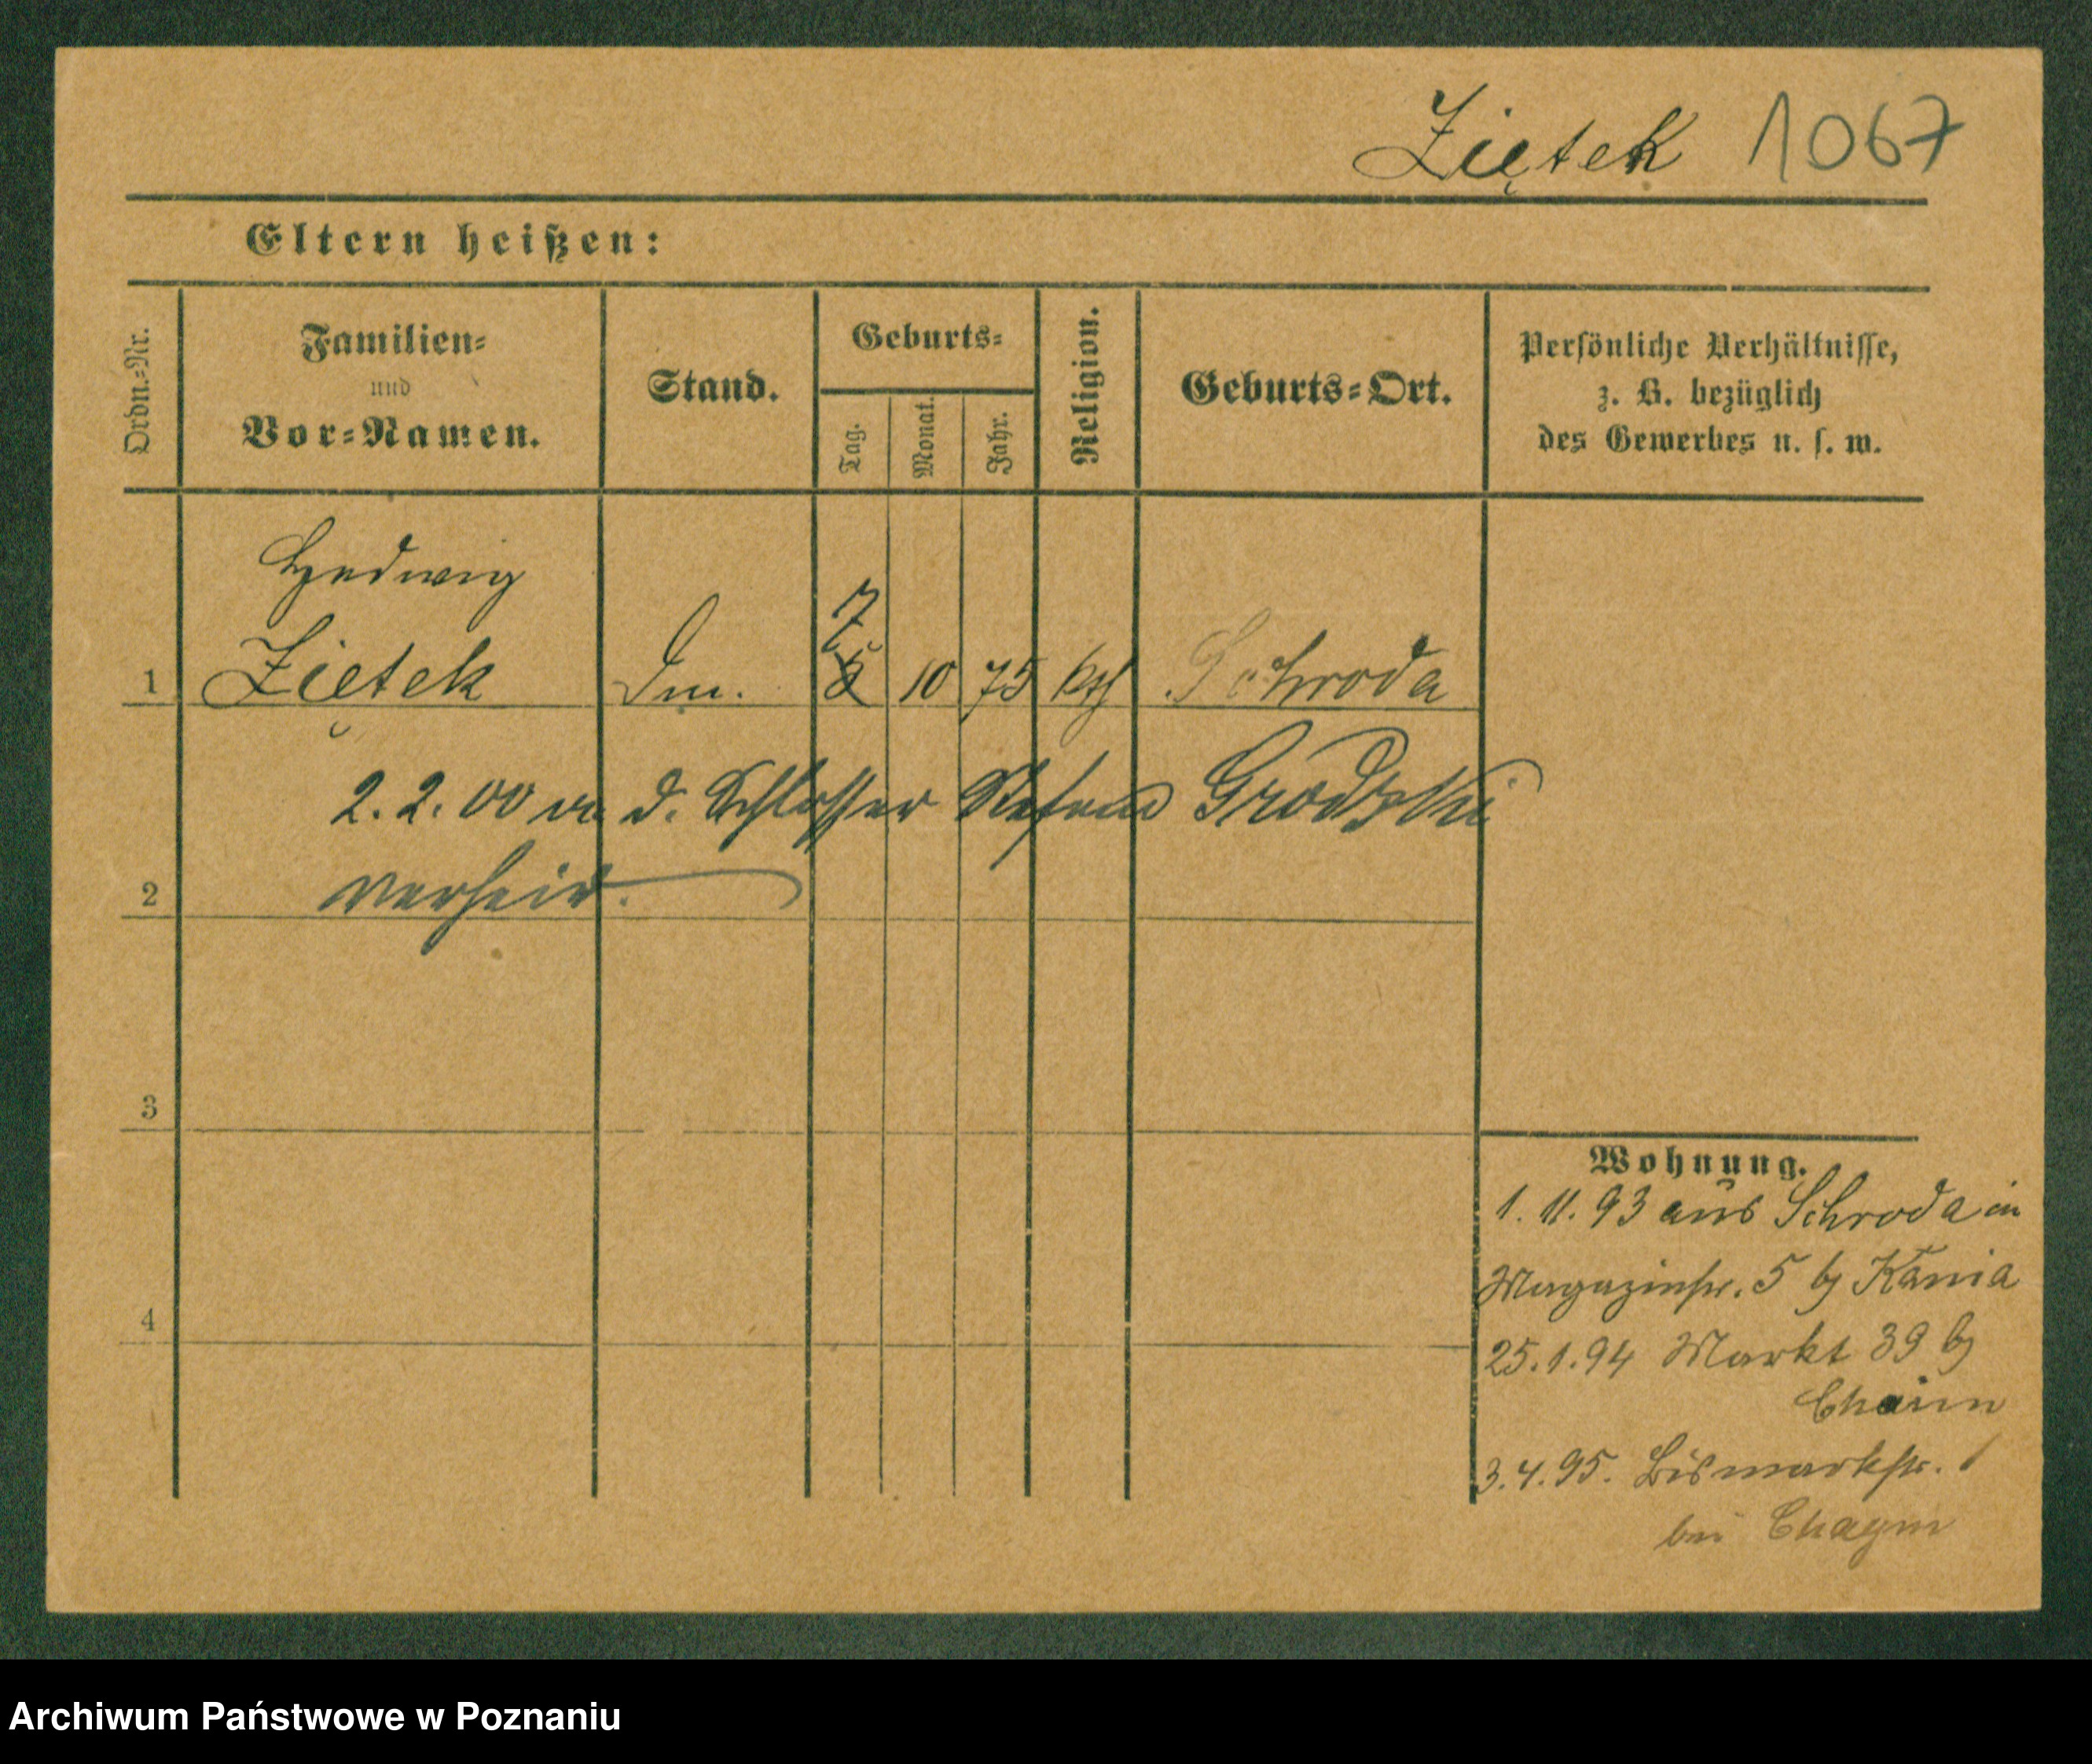 Ziętek 1067
Eltern heißen:
Ordn.-Nr.
Familien-
und
Vor-Namen.
Stand.
Geburts-
Tag.
Monat.
Jahr.
Religion.
Geburts-Ort.
Persönliche Verhältnisse,
z. B. bezüglich
des Gewerbes u. s. w.
Hedwig
1 Ziętek 7 10 75 kth Schroda
2.2.00 d. Schlosser Stefan Grodzki
2 verheir.
3
4
Wohnung.
1.11.93 aus Schroda in
Magazinstr. 5 b/ Kania
25.1.94 Markt 39 b/
Chaim
3.4.95. Bismarkstr. 1
bei Chaym
Archiwum Państwowe w Poznaniu